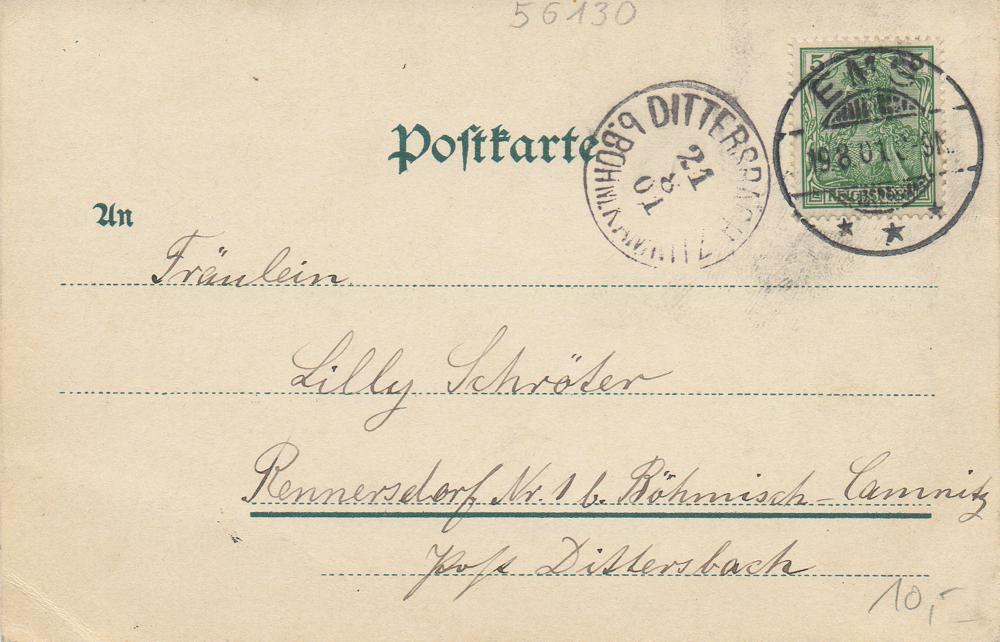 56130
5 5
REICHSPOST
EMS
19 8 01
DITTERSBACH b. BÖHM. KAMNITZ
21
8
01
Postkarte
An
Fräulein
Lilly Schröter
Rennersdorf Nr. 1 b. Böhmisch-Camnitz
Post Dittersbach
10,-